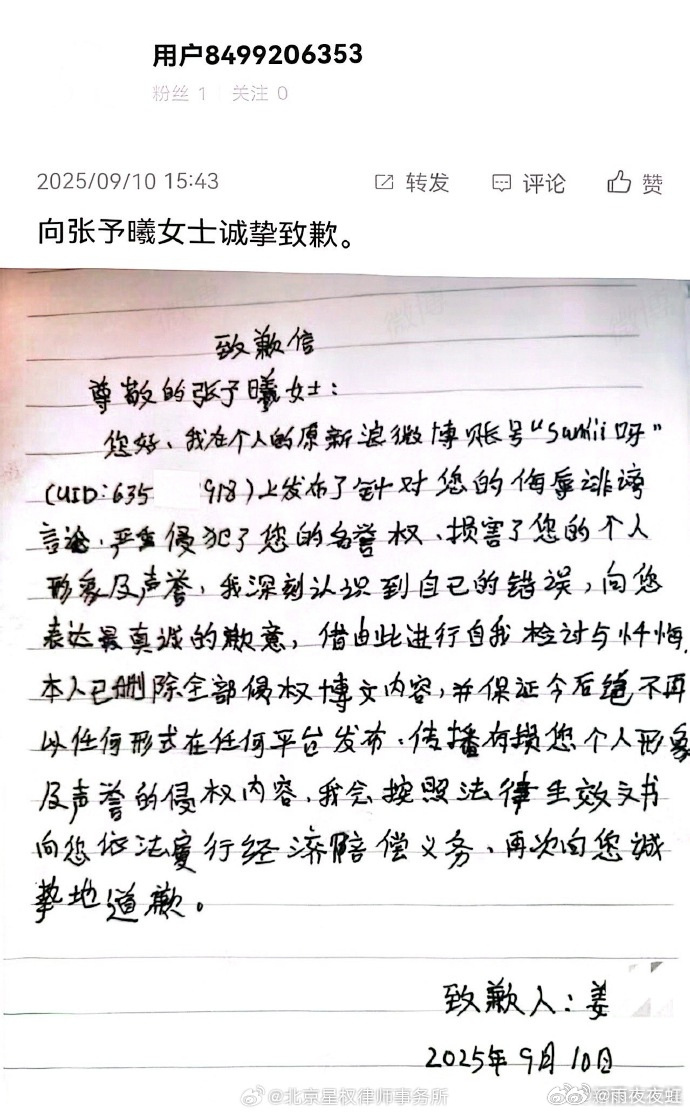 用户8499206353
粉丝 1 关注 0
2025/09/10 15:43 转发 评论 赞
向张予曦女士诚挚致歉。
致歉信
尊敬的张予曦女士：
您好、我在个人的原新浪微博账号“Sunkii呀”
(UID:635 918)上发布了针对您的侮辱诽谤
言论、严重侵犯了您的名誉权、损害了您的个人
形象及声誉，我深刻认识到自己的错误，向您
表达最真诚的歉意，借由此进行自我检讨与忏悔，
本人已删除全部侵权博文内容，并保证今后绝不再
以任何形式在任何平台发布、传播有损您个人形象
及声誉的侵权内容，我会按照法律生效文书
向您依法履行经济赔偿义务、再次向您诚
挚地道歉。
致歉人：姜
2025年9月10日
@北京星权律师事务所
@雨夜夜虹